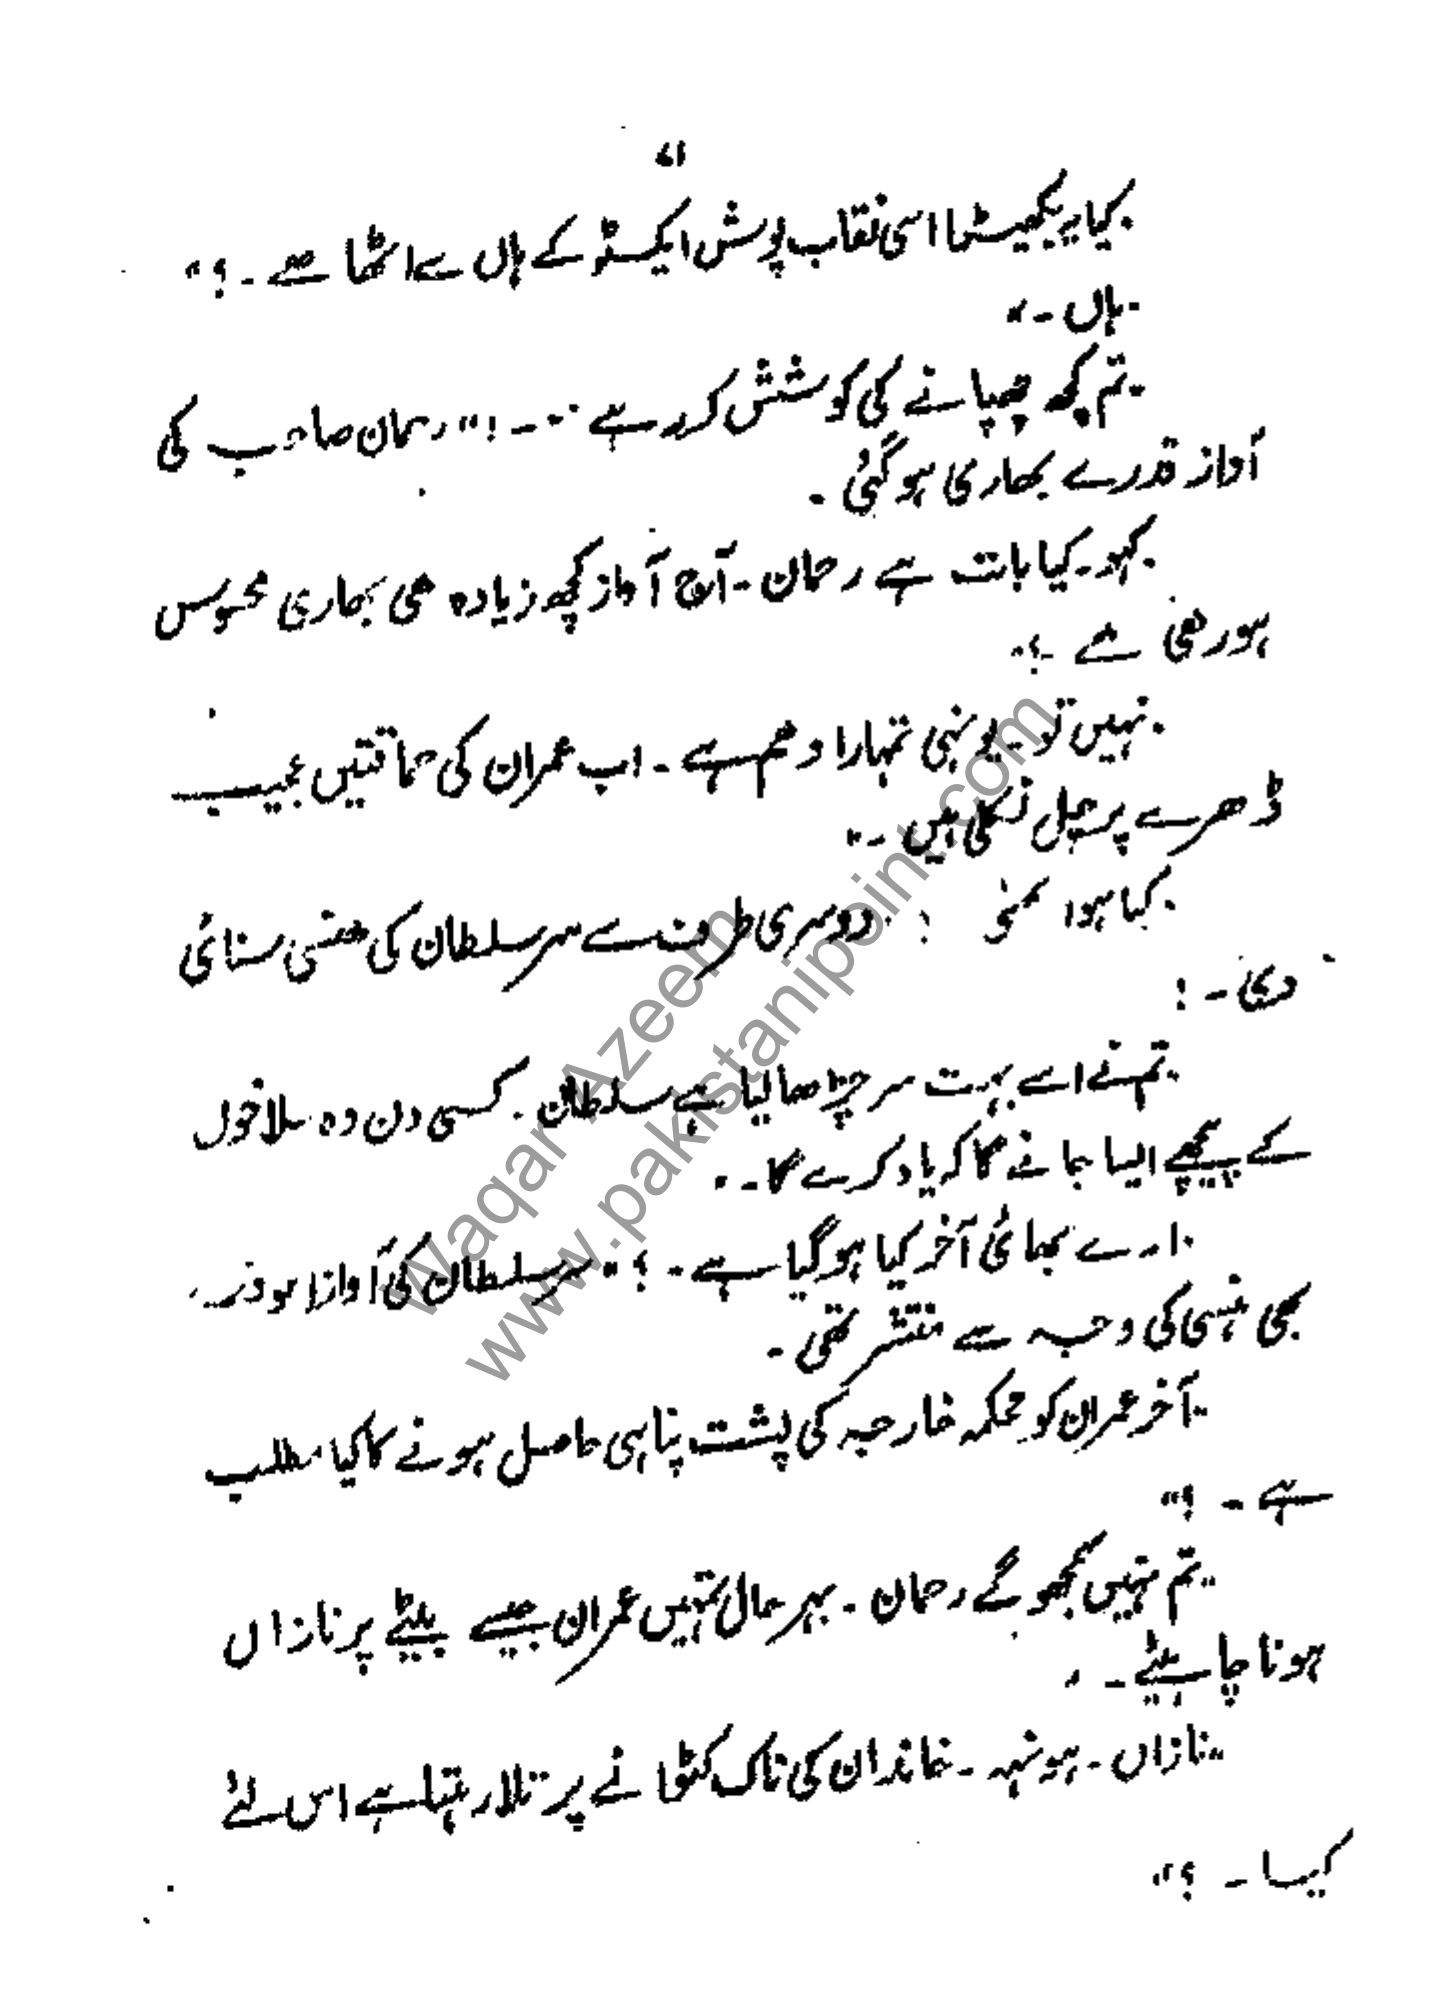 "کیا یہ بکھیڑا اسی نقاب پوش ایکسٹو کے ہاں سے اٹھا ھے ۔ ؟"
"ہاں ۔"
"تم کچھ چھپانے کی کوشش کر رہے ۔۔۔!" رحمان صاحب کی
آواز قدرے بھاری ہو گئی ۔
"کہو ۔ کیا بات ہے رحمان ۔ آج آواز کچھ زیادہ ھی بھاری محسوس
ہو رھی ھے ۔؟"
"نہیں تو ۔ یونہی تمہارا وھم ہے ۔ اب عمران کی حماقتیں عجیب
ڈھرے پر چل نکلی ہیں ۔"
"کیا ہوا بھئی !" دوسری طرف سے سر سلطان کی ھنسی سنائی
دی ۔ !
"تم نے اسے بہت سر چڑھا لیا ہے سلطان ۔ کسی دن وہ سلاخوں
کے پیچھے ایسا جائے گا کہ یاد کرے گا ۔"
"ارے بھائی آخر کیا ہو گیا ہے ۔ ؟" سر سلطان کی آواز
بھی ہنسی کی وجہ سے منتشر تھی ۔
"آخر عمران کو محکمہ خارجہ کی پشت پناہی حاصل ہونے کا کیا مطلب
ہے ۔ ؟"
"تم نہیں سمجھو گے رحمان ۔ بہر حال تمہیں عمران جیسے بیٹے پر نازاں
ہونا چاہیئے ۔"
"نازاں ۔ ہونہہ ۔ خاندان کی ناک کٹوانے پر تلا رہتا ہے اس لئے
کیسا ۔ ؟"
Waqar Azeem
www.pakistanipoint.com